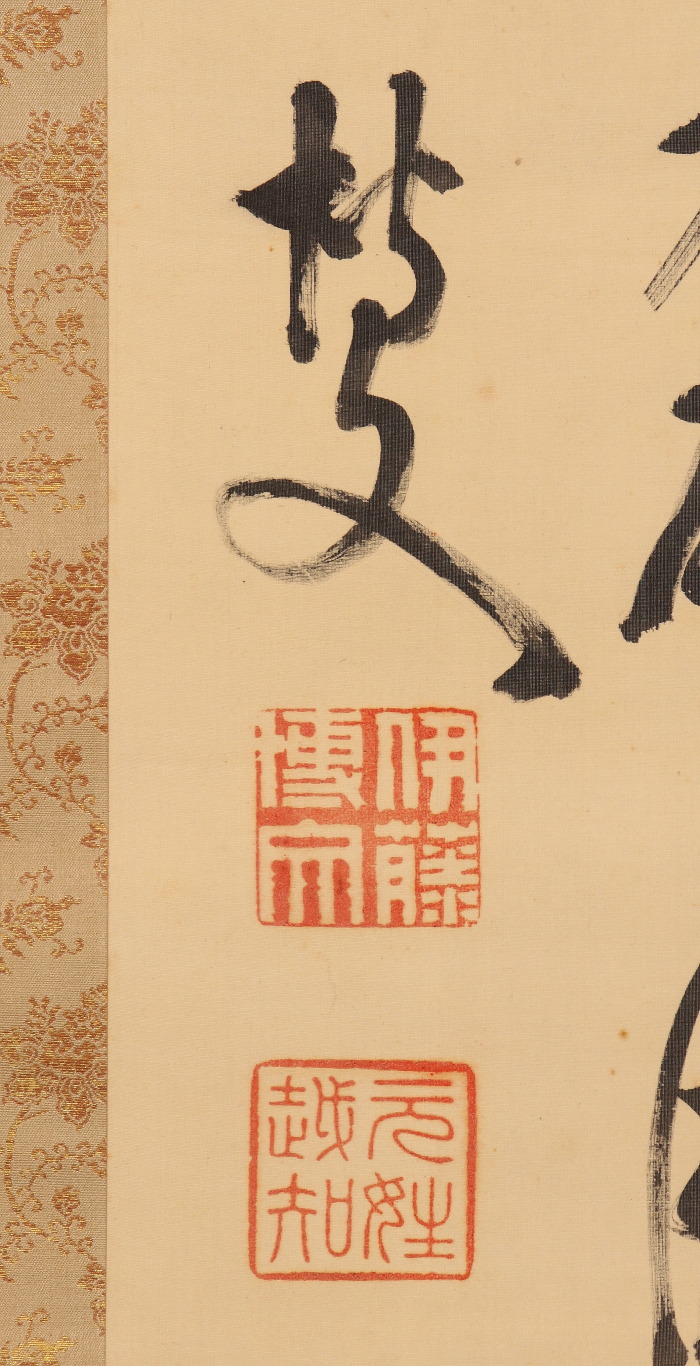 博文
伊藤
博文
元姓
越知